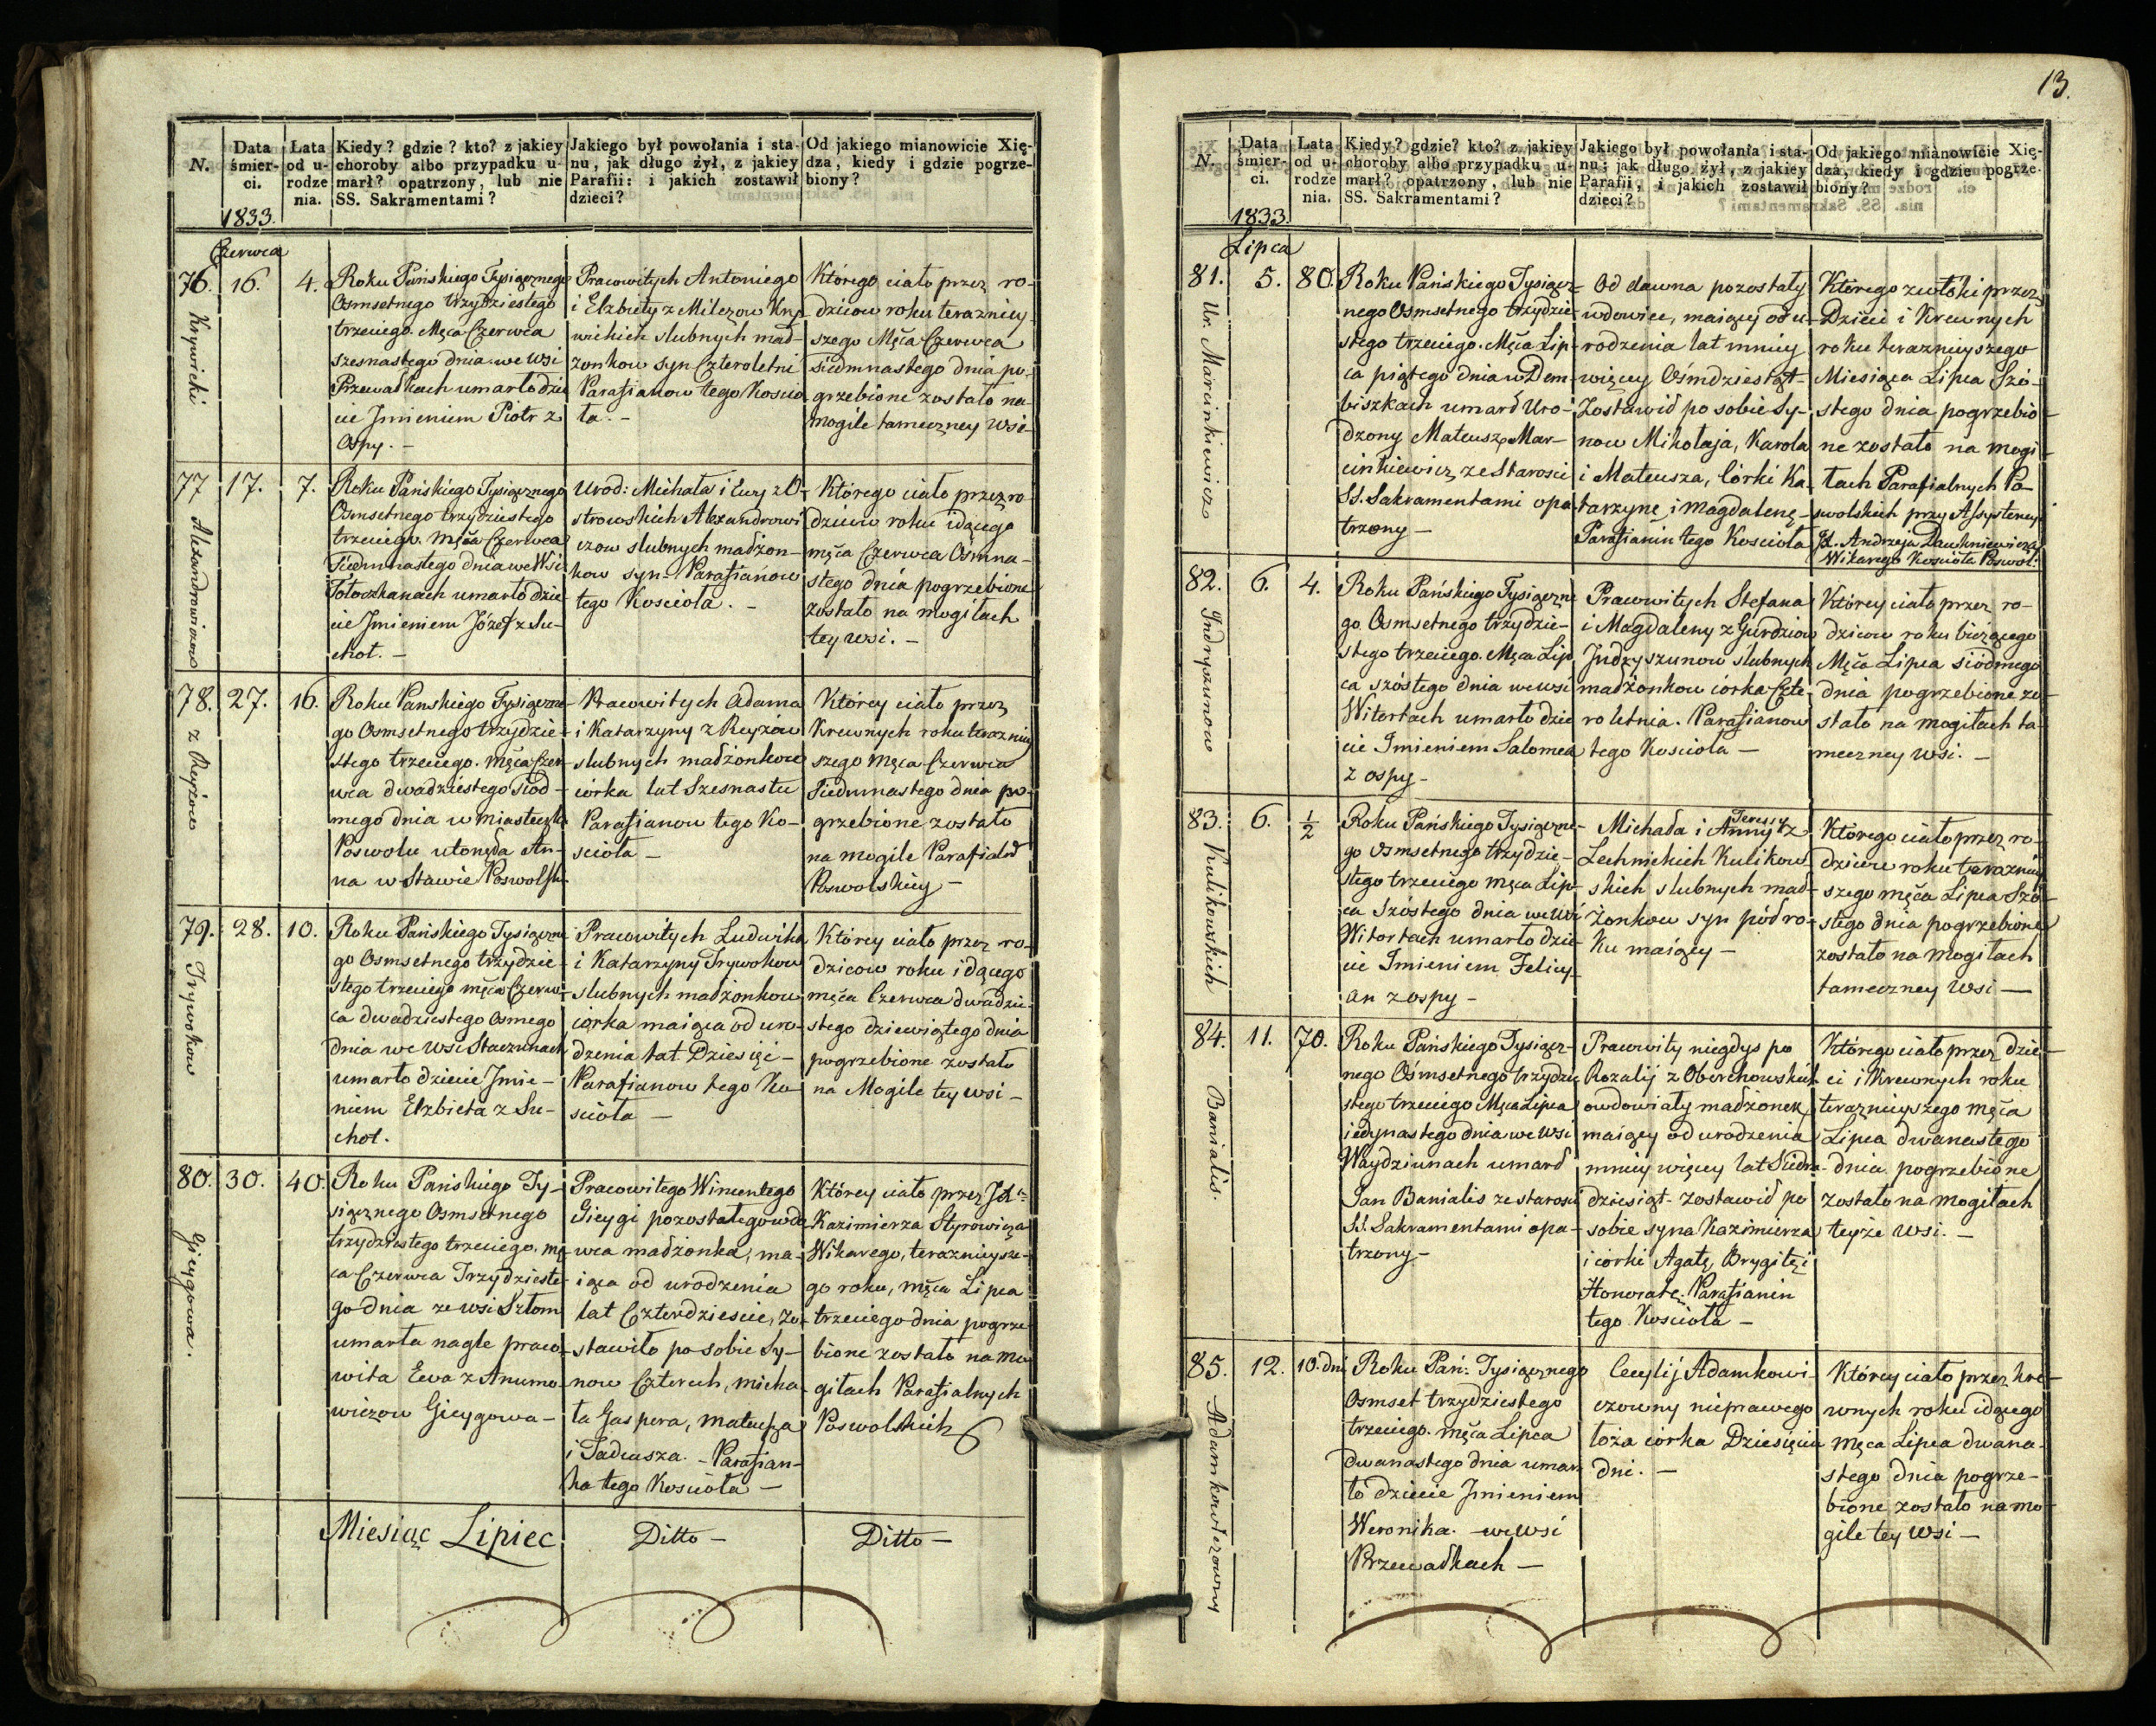 N.
Data śmierci.
1833.
Łata od urodzenia.
Kiedy? gdzie? kto? z jakiey
choroby albo przypadku u-
marł? opatrzony, lub nie
SS. Sakramentami?
Jakiego był powołania i sta-
nu, jak długo żył, z jakiey
Parafii: i jakich zostawił
dzieci?
Od jakiego mianowicie Xię-
dza, kiedy i gdzie pogrze-
biony?
Czerwca
76. 16. 4.
Krywicki
Roku Pańskiego Tysiącznego
Osmsetnego trzydziestego
trzeciego Męca Czerwca
szesnastego dnia we wsi
Przewałkach umarło dzie
cie Jmieniem Piotr z
Ospy. -
Pracowitych Antoniego
i Elzbiety z Milczow Kry
wickich slubnych mał-
zonkow syn Czteroletni
Parafianow tego Koscio
ła. -
Którego ciało przez ro-
dzicow roku terazniey
szego Męca Czerwca
siedmnastego dnia po-
grzebione zostało na
mogile tameczney wsi-
77 17. 7.
Alexandrowiczow
Roku Pańskiego Tysiącznego
Osmsetnego trzydziestego
trzeciego Męca Czerwca
Siedmnastego dnia we Wsi
umarło dzie
cie Jmieniem Józef z Su-
chot. -
Urod: Michała i Ewy z O-
strowskich Alexandrowi
czow slubnych małżon-
kow syn- Parafianow
tego Kosciola. -
Którego ciało przez ro
dzicow roku idącego
męca Czerwca Ośmna-
stego dnia pogrzebione
zostało na mogiłach
tey wsi. -
78. 27. 16.
z Reyżow
Roku Panskiego Tysiączne-
go Osmsetnego trzydzie-
stego trzeciego. męca Czer-
wca dwadziestego siod-
mego dnia w Miasteczku
Poswolu utonęła An-
na w Stawie Poswolsk.
Pracowitych Adama
i Katarzyny z Reyżow
slubnych małżonkow
corka lat Szesnastu
Parafianow tego Ko-
sciola -
Którey ciało przez
Krewnych roku terazniey
szego Męca Czerwca
Siedmnastego dnia po-
grzebione zostało
na mogile Parafial
Poswolskiey -
79. 28. 10.
Trywokow
Roku Pańskiego Tysiączne
go Osmsetnego trzydzie-
stego trzeciego męca Czerw-
ca dwadziestego osmego
dnia we wsi Staczunach
umarło dziecie Jmie-
niem Elzbieta z Su-
chot.
Pracowitych Ludwika
i Katarzyny Trywokow
slubnych małżonkow
corka maiąca od uro-
dzenia lat Dziesięć -
Parafianow tego Ko-
sciola -
Którey ciało przez ro-
dzicow roku idącego
męca Czerwca dwadzie-
stego dziewiątego dnia
pogrzebione zostało
na Mogile tey wsi -
80. 30. 40.
Gieygowa.
Roku Pańskiego Ty-
siącznego Osmsetnego
trzydziestego trzeciego mę
ca Czerwca Trzydzieste-
go dnia ze wsi Sztom
umarła nagle praco-
wita Ewa z Anumo
wiczow Gieygowa -
Pracowitego Wincentego
Gieygi pozostałego wdo
wca małżonka, ma-
iąca od urodzenia
lat Czterdziescie, Zo-
stawiło po sobie Sy-
now Czterech, Micha-
ła Gaspera, Mateusza
i Tadeusza. - Parafian-
ka tego Kosciola -
Którey ciało przez Jx
Kazimierza Styrowicza
Wikarego, teraznieysze-
go roku, męca Lipca
trzeciego dnia pogrze-
bione zostało na mo
giłach Parafialnych
Poswolskich
Miesiąc Lipiec
Ditto -
Ditto -
13.
N.
Data śmierci.
1833.
Łata od urodzenia.
Kiedy? gdzie? kto? z jakiey
choroby albo przypadku u-
marł? opatrzony, lub nie
SS. Sakramentami?
Jakiego był powołania i sta-
nu; jak długo żył, z jakiey
Parafii, i jakich zostawił
dzieci?
Od jakiego mianowicie Xię-
dza, kiedy i gdzie pogrze-
biony?
Lipca
81. 5. 80.
Ur. Marcinkiewicz
Roku Pańskiego Tysiącz-
nego Osmsetnego trzydzie-
stego trzeciego. Męca Lip-
ca piątego dnia w Dem
biszkach umarł Uro-
dzony Mateusz Mar-
cinkiewicz, ze Starosci
SS. Sakramentami opa
trzony -
Od dawna pozostały
wdowiec, maiący od u-
rodzenia lat mniey
więcey Ośmdziesiąt-
Zostawił po sobie Sy-
now Mikołaja, Karola
i Mateusza, Corki Ka-
tarzynę i Magdalenę -
Parafianin tego Kosciola
Którego zwłoki przez
Dzieci i Krewnych
roku teraznieyszego
Miesiąca Lipca Szó-
stego dnia pogrzebio-
ne zostało na mogi-
łach Parafialnych Po-
swolskich przy Assystencyi
Jx. Andrzeja Daukniewicza
Wikarego Kosciola Poswol:
82. 6. 4.
Indryszunow
Roku Pańskiego Tysiączne
go Osmsetnego trzydzie-
stego trzeciego. Męca Lip
ca szóstego dnia we wsi
Witortach umarło dzie
cie Imieniem Salomea
z ospy -
Pracowitych Stefana
i Magdaleny z Gurdziow
Indryszunow slubnych
małżonkow corka Czte-
roletnia. Parafianow
tego Kosciola -
Którey ciało przez ro-
dzicow roku bieżącego
Męca Lipca siódmego
dnia pogrzebione zo-
stało na mogiłach ta-
meczney wsi. -
83. 6. 1/2
Kulikowskich
Roku Pańskiego Tysiączne-
go osmsetnego trzydzie-
stego trzeciego męca Lip-
ca Szóstego dnia we wsi
Witortach umarło dzie-
cie Imieniem Felicy-
an z ospy -
Teressy
Michała i Anny z
Lechnickich Kulikow
skich slubnych mał-
żonkow syn pół ro-
ku maiący -
Którego ciało przez ro-
dzicow roku terazniey
szego męca Lipca Szó-
stego dnia pogrzebione
zostało na mogiłach
tameczney wsi —
84. 11. 70.
Banialis.
Roku Pańskiego Tysiącz-
nego Ośmsetnego trzydzie
stego trzeciego Męca Lipca
iedynastego dnia we wsi
Waydziunach umarł
Jan Banialis ze starosci
SS. Sakramentami opa-
trzony -
Pracowity niegdys po
Rozalij z Oberchowskich
owdowiały małżonek,
maiący od urodzenia
mniey więcey lat Siedm-
dziesiąt- zostawił po
sobie syna Kazimierza
i corki Agatę, Brygitę i
Honoratę. Parafianin
tego Kosciola -
Którego ciało przez dzie-
ci i Krewnych roku
teraznieyszego męca
Lipca dwanastego
dnia pogrzebione
zostało na mogiłach
teyże wsi. -
85. 12. 10. dni
Adamkowiczowny
Roku Pań: Tysiącznego
Osmset trzydziestego
trzeciego. męca Lipca
dwanastego dnia umar
ło dziecie Jmieniem
Weronika. - we wsi
Przewałkach -
Cecylij Adamkowi-
czowny nieprawego
łoża corka Dziesięciu
dni. -
Którey ciało przez kre-
wnych roku idącego
Męca Lipca dwana-
stego dnia pogrze-
bione zostało na mo-
gile tey wsi -